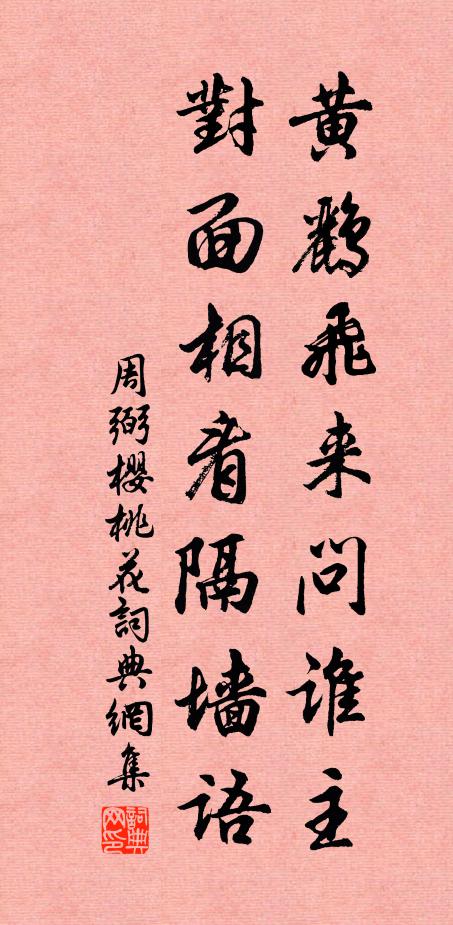 黄鹂飛来问谁主
對面相看隔墙语
周弼櫻桃花詞典網集
詞典网印